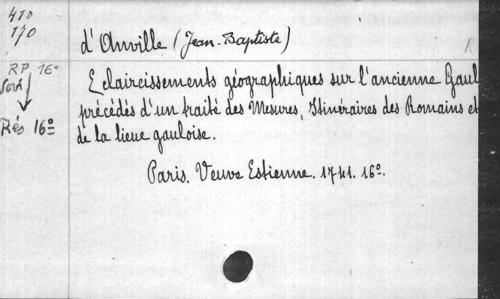 410
170
d'Anville (Jean-Baptiste)
R
RP 16°
Sorti
Rés 16°
Eclaircissements géographiques sur l'ancienne Gaul
précédés d'un traité des Mesures, Itinéraires des Romains et
de la lieue gauloise.
Paris. Veuve Estienne. 1741. 16°.